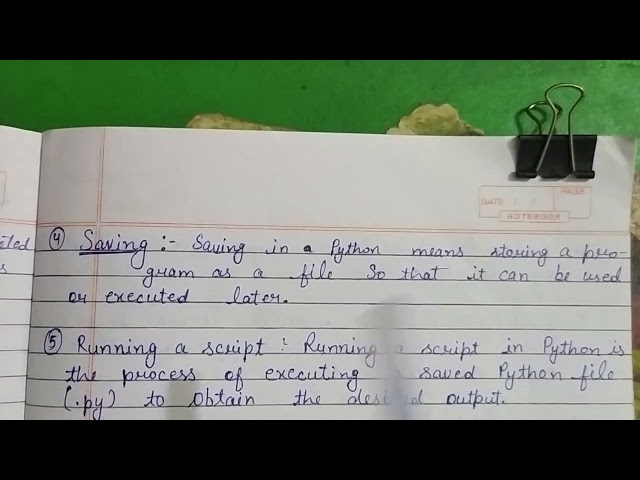 DATE
PAGE
NOTEBOOK
④ Saving :- Saving in a Python means storing a pro-
gram as a file so that it can be used
or executed later.
⑤ Running a script : Running a script in Python is
the process of executing saved Python file
(.py) to obtain the desired output.